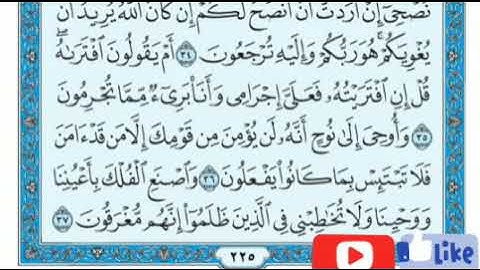 نُصۡحِيٓ إِنۡ أَرَدتُّ أَنۡ أَنصَحَ لَكُمۡ إِن كَانَ ٱللَّهُ يُرِيدُ أَن
يُغۡوِيَكُمۡۚ هُوَ رَبُّكُمۡ وَإِلَيۡهِ تُرۡجَعُونَ ٣٤ أَمۡ يَقُولُونَ ٱفۡتَرَىٰهُۖ
قُلۡ إِنِ ٱفۡتَرَيۡتُهُۥ فَعَلَيَّ إِجۡرَامِي وَأَنَا۠ بَرِيٓءٞ مِّمَّا تُجۡرِمُونَ
٣٥ وَأُوحِيَ إِلَىٰ نُوحٍ أَنَّهُۥ لَن يُؤۡمِنَ مِن قَوۡمِكَ إِلَّا مَن قَدۡ ءَامَنَ
فَلَا تَبۡتَئِسۡ بِمَا كَانُواْ يَفۡعَلُونَ ٣٦ وَٱصۡنَعِ ٱلۡفُلۡكَ بِأَعۡيُنِنَا
وَوَحۡيِنَا وَلَا تُخَٰطِبۡنِي فِي ٱلَّذِينَ ظَلَمُوٓاْ إِنَّهُم مُّغۡرَقُونَ ٣٧
٢٢٥
Like